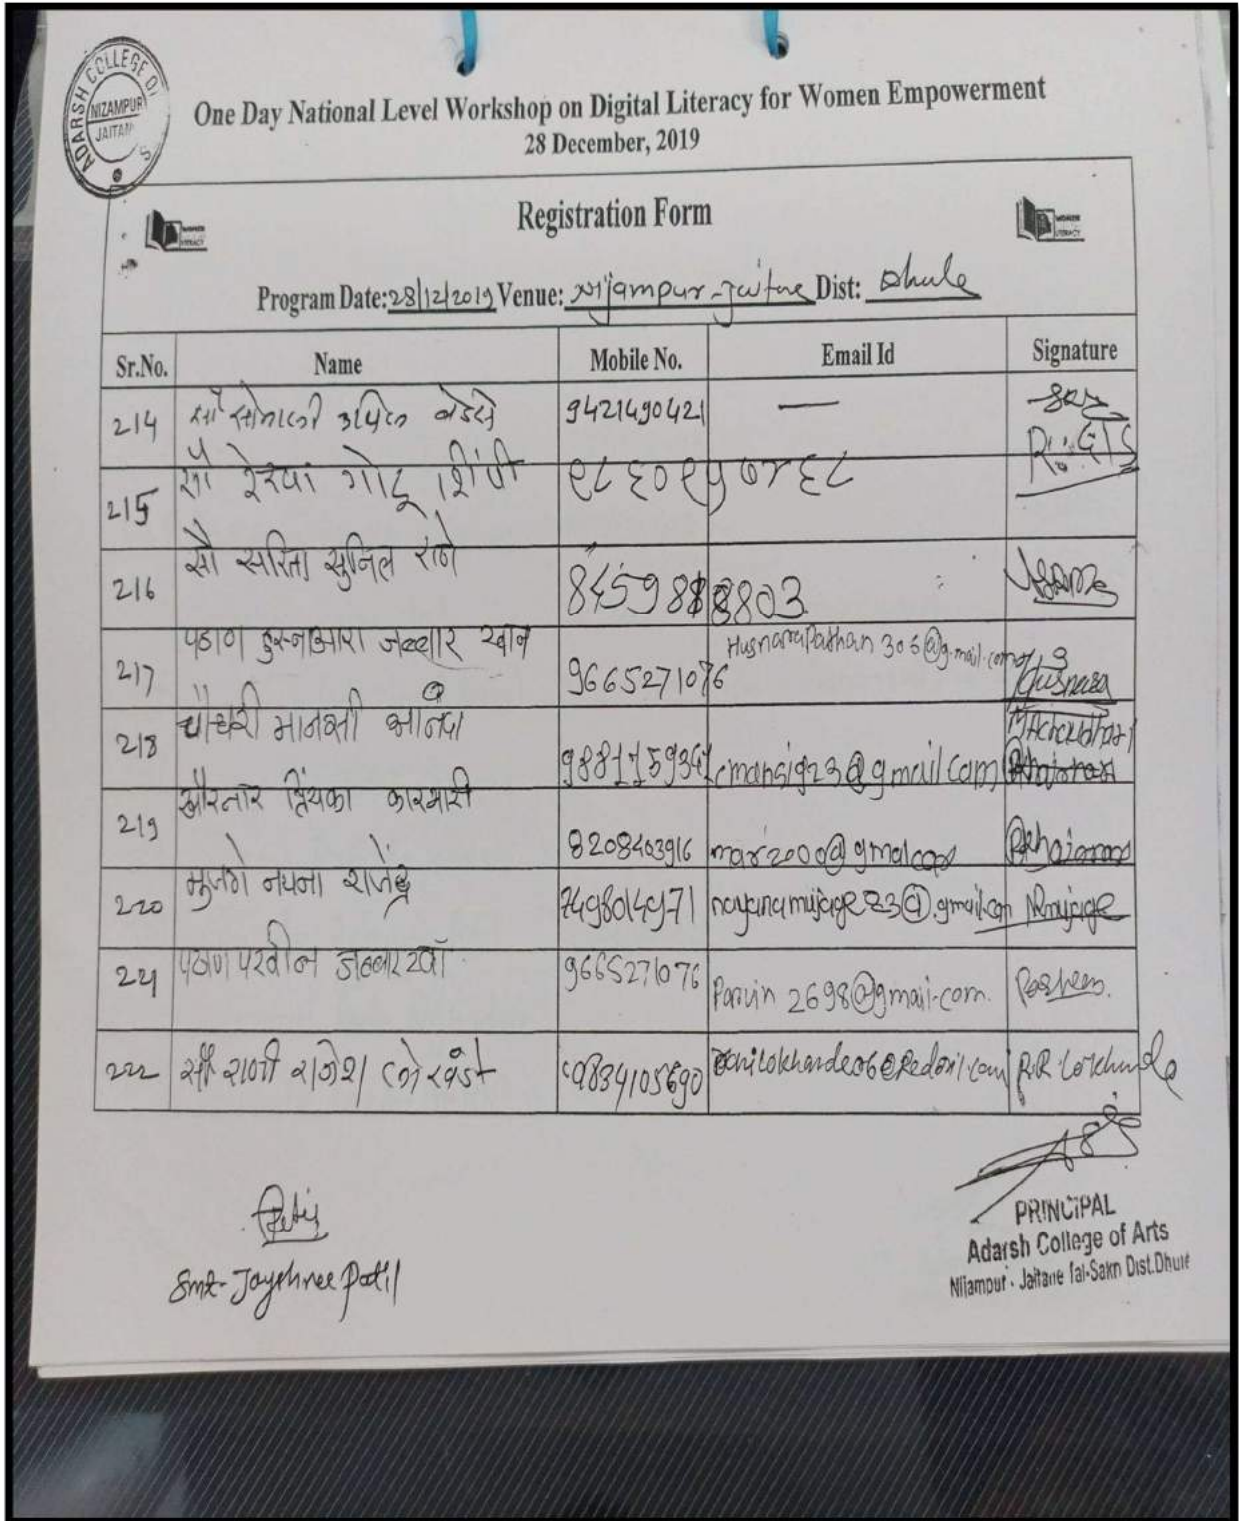 ADARSH COLLEGE OF
NIZAMPUR
JAITANE
One Day National Level Workshop on Digital Literacy for Women Empowerment
28 December, 2019
Registration Form
Program Date:28/12/2019 Venue: Nijampur-Jaitane Dist: Dhule
Sr.No. Name Mobile No. Email Id Signature
214 सौ सोनाली 9421490421 —
215 सौ रेखा गोटू शिंपी ९८६०९५७२६८
216 सौ सरिता सुनिल राणे
217 पठाण हुस्नआरा जब्बार खान 9665271076 HusnaraPathan306@gmail.com Husnara
218 चौधरी मानसी आनंदा cmansi923@gmail.com MAchaudhari
219 खैरनार प्रियंका कारभारी 8208403916
220 मुजगे नयना राजेंद्र 7498014971 nayanamujage23@.gmail.com NRmujage
221 पठाण परवीन जब्बारखाँ 9665271076 Parvin2698@gmail.com.
222 सौ राणी राजेश लोखंडे 9834105690 R.R.Lokhande
Smt-Jayshree Patil
PRINCIPAL
Adarsh College of Arts
Nijampur - Jaitane Tal-Sakri Dist.Dhule